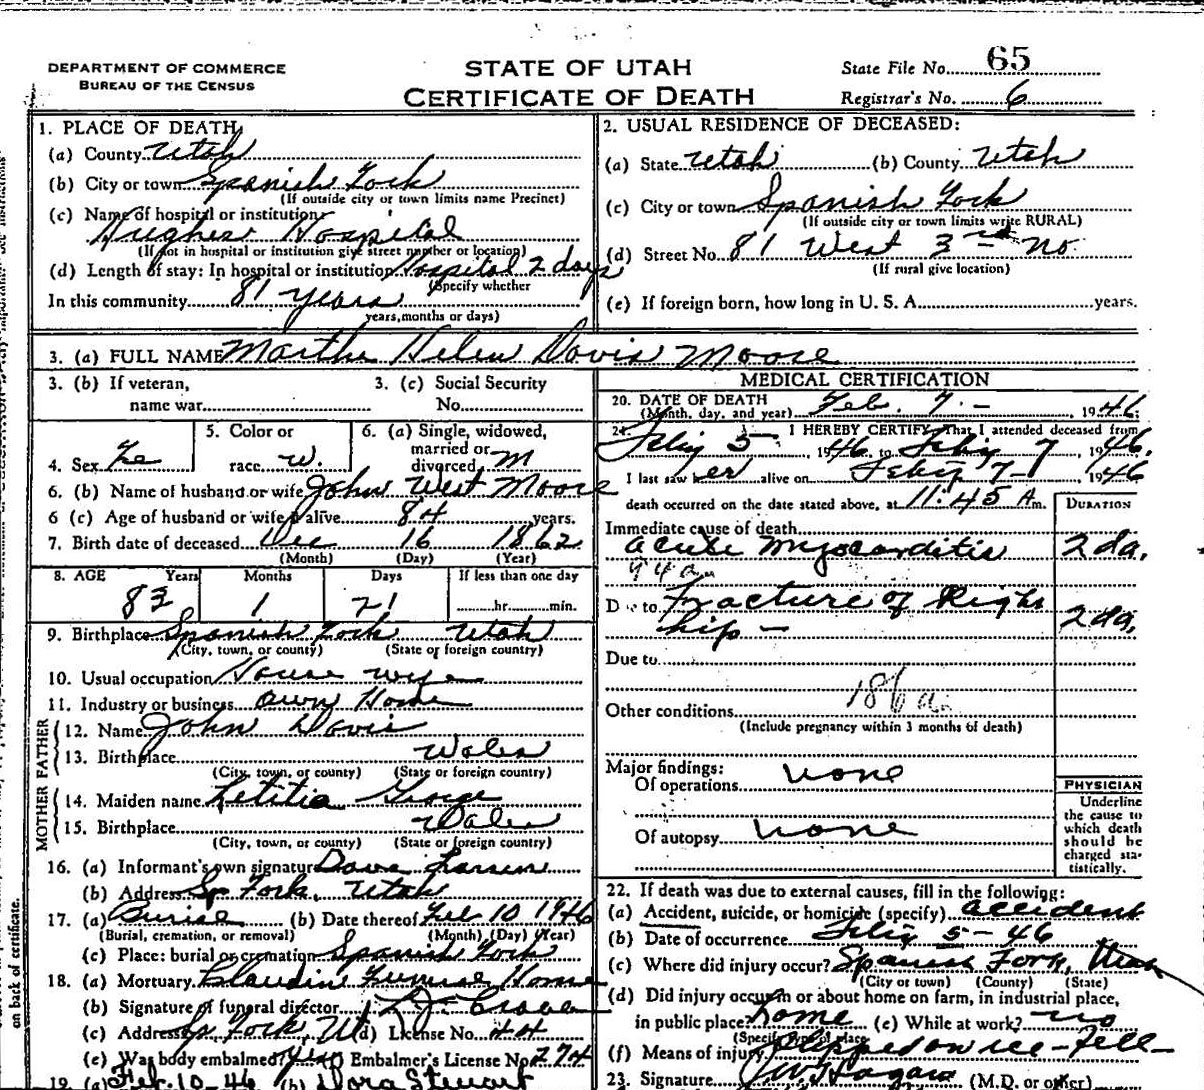 DEPARTMENT OF COMMERCE
BUREAU OF THE CENSUS
STATE OF UTAH
CERTIFICATE OF DEATH
State File No. 65
Registrar's No. 6
1. PLACE OF DEATH
(a) County Utah
(b) City or town Spanish Fork
(If outside city or town limits name Precinct)
(c) Name of hospital or institution
Hughes Hospital
(If not in hospital or institution give street number or location)
(d) Length of stay: In hospital or institution hospital 2 days
(Specify whether
In this community 81 years
years, months or days)
2. USUAL RESIDENCE OF DECEASED:
(a) State Utah (b) County Utah
(c) City or town Spanish Fork
(If outside city or town limits write RURAL)
(d) Street No. 81 West 3rd No
(If rural give location)
(e) If foreign born, how long in U. S. A. years.
3. (a) FULL NAME Martha Helen Davis Moore
3. (b) If veteran, name war
3. (c) Social Security No.
4. Sex Fe
5. Color or race W.
6. (a) Single, widowed, married or divorced M
6. (b) Name of husband or wife John West Moore
6 (c) Age of husband or wife if alive 84 years.
7. Birth date of deceased Dec 16 1862
(Month) (Day) (Year)
8. AGE Years Months Days If less than one day
83 1 21 hr. min.
9. Birthplace Spanish Fork Utah
(City, town, or county) (State or foreign country)
10. Usual occupation House wife
11. Industry or business Own Home
FATHER
12. Name John Davis
13. Birthplace Wales
(City, town, or county) (State or foreign country)
MOTHER
14. Maiden name Letitia George
15. Birthplace Wales
(City, town, or county) (State or foreign country)
16. (a) Informant's own signature Dave Larsen
(b) Address Sp Fork, Utah
17. (a) Burial (b) Date thereof Feb 10 1946
(Burial, cremation, or removal) (Month) (Day) (Year)
(c) Place: burial or cremation Spanish Fork
18. (a) Mortuary Claudin Funeral Home
(b) Signature of funeral director
(c) Address Sp Fork, Ut (d) License No. 44
(e) Was body embalmed yes Embalmer's License No. 274
19. (a) Feb. 10-46 (b) Dora Stewart
MEDICAL CERTIFICATION
20. DATE OF DEATH
(Month, day, and year) Feb. 7 - , 1946
21. I HEREBY CERTIFY, That I attended deceased from
Feby 5 1946 to Feby 7 , 1946.
I last saw her alive on Feby 7 - , 1946
death occurred on the date stated above, at 11:45 A m.
DURATION
Immediate cause of death
acute myocarditis 2 da.
94a
Due to Fracture of Right hip - 2 da.
Due to
186a
Other conditions
(Include pregnancy within 3 months of death)
Major findings:
Of operations none
Of autopsy none
PHYSICIAN
Underline
the cause to
which death
should be
charged sta-
tistically.
22. If death was due to external causes, fill in the following:
(a) Accident, suicide, or homicide (specify) accident
(b) Date of occurrence Feby 5 - 46
(c) Where did injury occur? Spanish Fork, Utah
(City or town) (County) (State)
(d) Did injury occur in or about home on farm, in industrial place,
in public place? home (e) While at work? no
(Specify type of place)
(f) Means of injury Slipped on ice - fell -
23. Signature (M.D. or other)
on back of certificate.